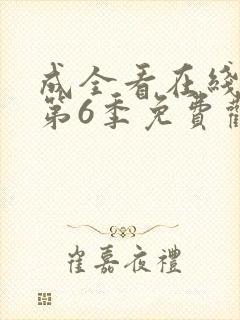 成全看在綫
第6季免費觀
崔嘉夜禮